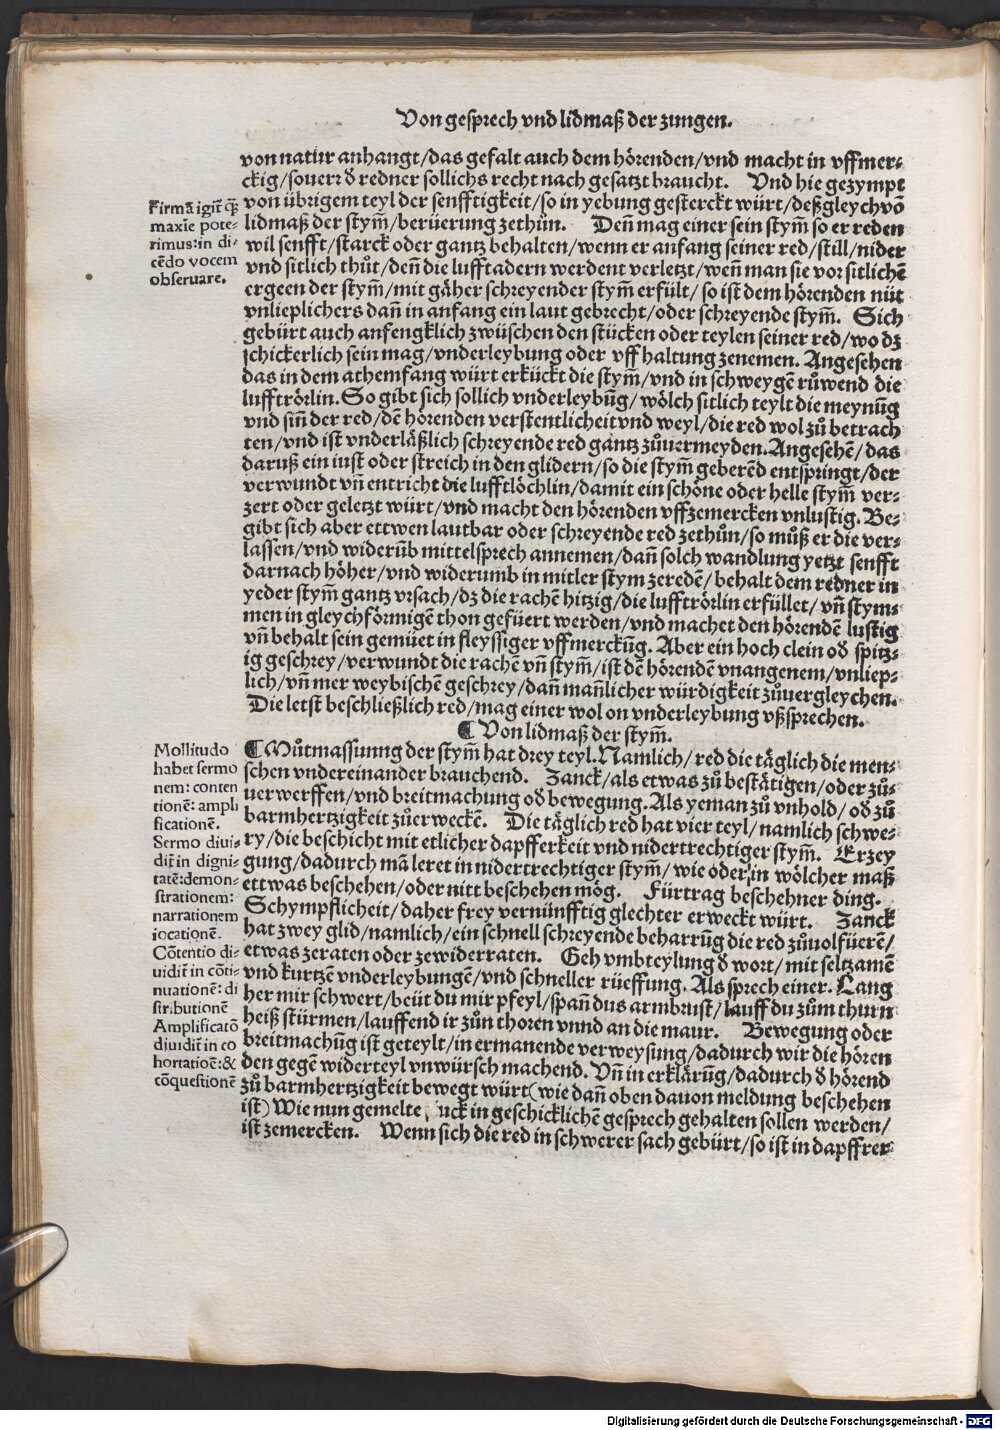 Von gesprech vnd lidmaß der zungen.
von natur anhangt/das gefalt auch dem hörenden/vnd macht in vffmer⸗
ckig/souerr d̕ redner sollichs recht nach gesatzt braucht. Vnd hie gezympt
von übrigem teyl der senfftigkeit/so in yebung gesterckt würt/deßgleych võ
lidmaß der stym̃/berüerung zethůn. Deñ mag einer sein stym̃ so er reden
wil senfft/starck oder gantz behalten/wenn er anfang seiner red/still/nider
vnd sitlich thůt/deñ die lufftadern werdent verletzt/weñ man sie vor sitlichẽ
ergeen der stym̃/mit gäher schreyender stym̃ erfült/so ist dem hörenden nüt
vnlieplichers dañ in anfang ein laut gebrecht/oder schreyende stym̃. Sich
gebürt auch anfengklich zwüschen den stücken oder teylen seiner red/wo dz
schickerlich sein mag/vnderleybung oder vff haltung zenemen. Angesehen
das in dem athemfang würt erkückt die stym̃/vnd in schweygẽ růwend die
lufftrörlin. So gibt sich sollich vnderleybũg/wölch sitlich teylt die meynũg
vnd siñ der red/dẽ hörenden verstentlicheit vnd weyl/die red wol zů betrach
ten/vnd ist vnderläßlich schreyende red gantz zůuermeyden. Angesehẽ/das
daruß ein iust oder streich in den glidern/so die stym̃ geberẽd entspringt/der
verwundt vñ entricht die lufftlöchlin/damit ein schöne oder helle stym̃ ver⸗
zert oder geletzt würt/vnd macht den hörenden vffzemercken vnlustig. Be⸗
gibt sich aber ettwen lautbar oder schreyende red zethůn/so můß er die ver⸗
lassen/vnd widerũb mittelsprech annemen/dañ solch wandlung yetzt senfft
darnach höher/vnd widerumb in mitler stym zeredẽ/behalt dem redner in
yeder stym̃ gantz vrsach/dz die rachẽ hitzig/die lufftrörlin erfüllet/vñ stym⸗
men in gleychförmigẽ thon gefüert werden/vnd machet den hörendẽ lustig
vñ behalt sein gemüet in fleyssiger vffmerckũg. Aber ein hoch clein od̕ spitz⸗
ig geschrey/verwundt die rachẽ vñ stym̃/ist dẽ hörendẽ vnangenem/vnliep⸗
lich/vñ mer weybischẽ geschrey/dañ mañlicher würdigkeit zůuergleychen.
Die letst beschließlich red/mag einer wol on vnderleybung vßsprechen.
Firmã igit̃ q̃
maxĩe pote⸗
rimus: in di⸗
cẽdo vocem
obseruare.
¶ Von lidmaß der stym̃.
¶ Můtmassunng der stym̃ hat drey teyl. Namlich/red die täglich die men⸗
schen vndereinander brauchend. Zanck/als etwas zů bestätigen/oder zů⸗
uerwerffen/vnd breitmachung od̕ bewegung. Als yeman zů vnhold/od̕ zů
barmhertzigkeit zůerweckẽ. Die täglich red hat vier teyl/namlich schwe⸗
ry/die beschicht mit etlicher dapfferkeit vnd nidertrechtiger stym̃. Erzey
gung/dadurch mã leret in nidertrechtiger stym̃/wie oder/in wölcher maß
ettwas beschehen/oder nitt beschehen mög. Fürtrag beschehner ding.
Schympflicheit/daher frey vernünfftig glechter erweckt würt. Zanck
hat zwey glid/namlich/ein schnell schreyende beharrũg die red zůuolfüerẽ/
etwas zeraten oder zewiderraten. Geh vmbteylung d̕ wort/mit seltzamẽ
vnd kurtzẽ vnderleybungẽ/vnd schneller rüeffung. Als sprech einer. Lang
her mir schwert/beüt du mir pfeyl/spañ dus armbrust/lauff du zům thurn
heiß stürmen/lauffend ir zůn thoren vnnd an die maur. Bewegung oder
breitmachũg ist geteylt/in ermanende verweysung/dadurch wir die hören
den gegẽ widerteyl vnwürsch machend. Vñ in erklärũg/dadurch d̕ hörend
zů barmhertzigkeit bewegt würt (wie dañ oben dauon meldung beschehen
ist) Wie nun gemelte uck in geschicklichẽ gesprech gehalten sollen werden/
ist zemercken. Wenn sich die red in schwerer sach gebürt/so ist in dapffrer
Mollitudo
habet sermo
nem: conten
tionẽ: ampli
ficationẽ.
Sermo diui⸗
dit̃ in digni⸗
tatẽ: demon⸗
strationem:
narrationem
iocationẽ.
Cõtentio di⸗
uidit̃ in cõti⸗
nuationẽ: di
stributionẽ
Amplificatõ
diuidit̃ in co
hortatioẽ: &
cõquestionẽ
Digitalisierung gefördert durch die Deutsche Forschungsgemeinschaft - DFG